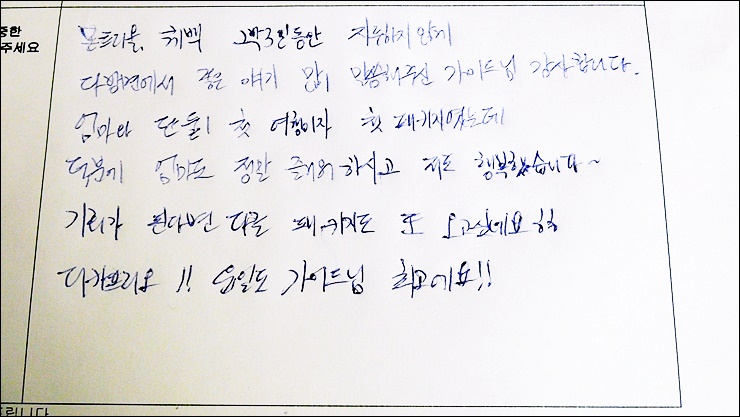 중한
주세요
몬트리올, 퀘백 2박3일동안 지루하지 않게
다방면에서 좋은 얘기 많이 말씀해주신 가이드님 감사합니다.
엄마와 단둘이 첫 여행이자 첫 패키지였는데
덕분에 엄마도 정말 즐거워 하시고 저도 행복했습니다~
기회가 된다면 다른 패키지도 또 오고싶네요 ㅎㅎ
다카프리오 !! 가이드님 최고예요!!
드립니다